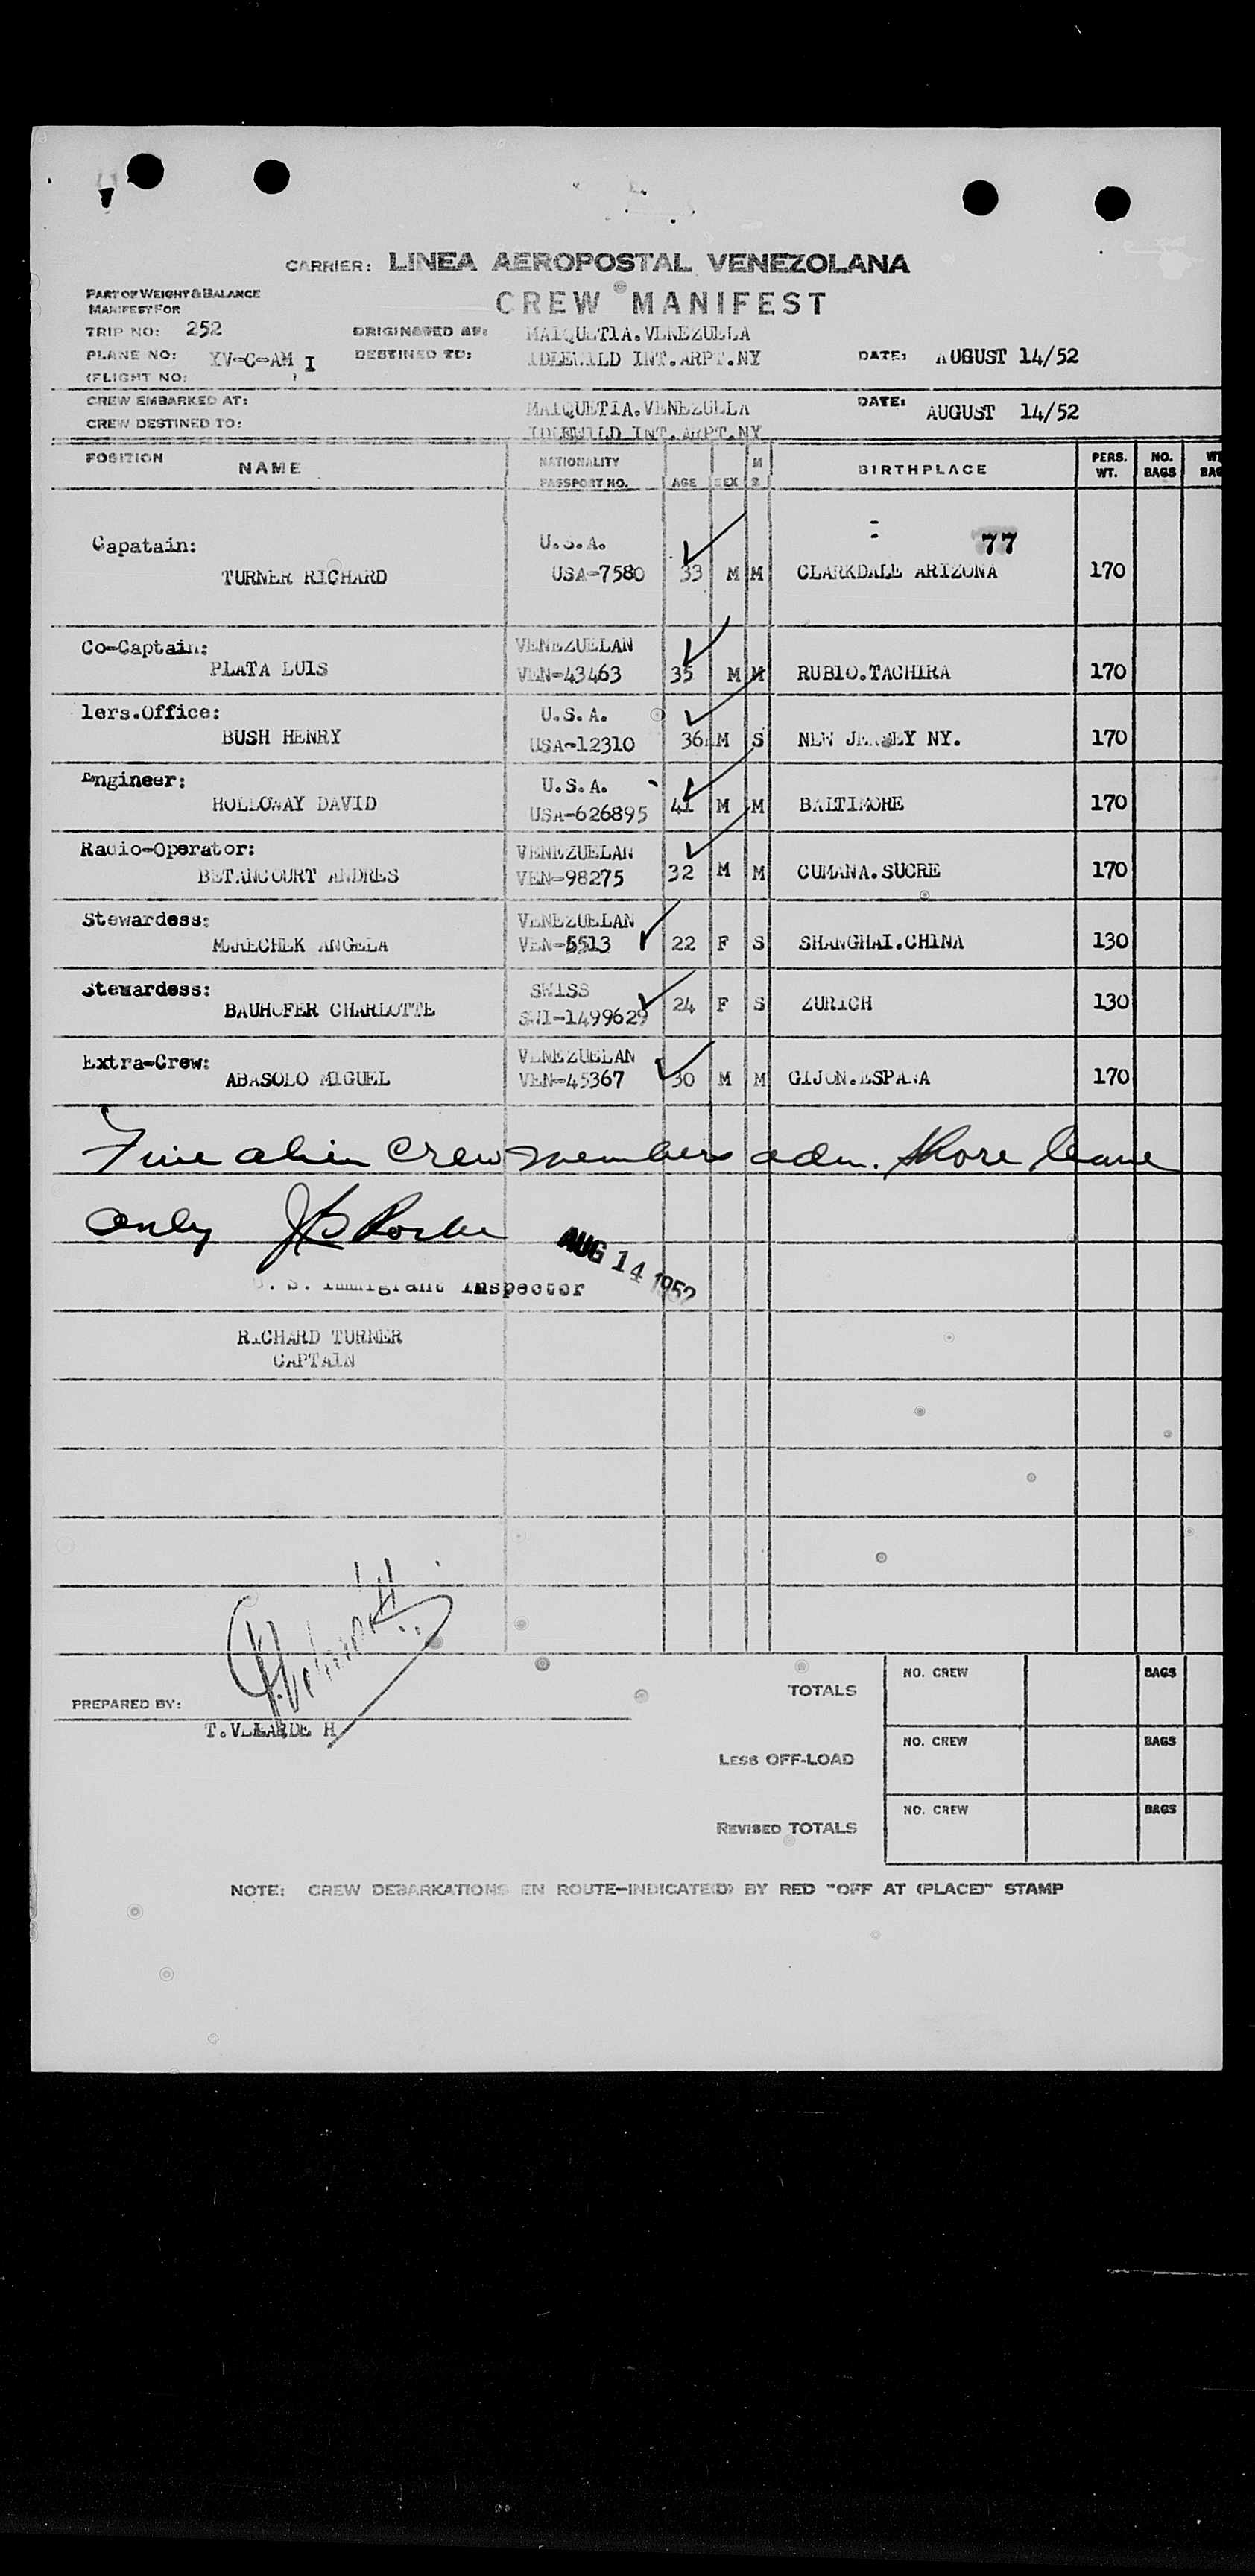 CARRIER: LINEA AEROPOSTAL VENEZOLANA
CREW MANIFEST
PART OF WEIGHT & BALANCE
MANIFEST FOR
TRIP NO: 252
ORIGINATED AT: MAIQUETIA.VENEZUELA
PLANE NO: YV-C-AM I
DESTINED TO: IDLEWILD INT.ARPT.NY
DATE: AUGUST 14/52
(FLIGHT NO: )
CREW EMBARKED AT: MAIQUETIA.VENEZUELLA
DATE: AUGUST 14/52
CREW DESTINED TO: IDLEWILD INT.ARPT.NY
POSITION NAME NATIONALITY PASSPORT NO. AGE SEX M S BIRTHPLACE PERS. WT. NO. BAGS
77
Capatain: U.S.A.
TURNER RICHARD USA-7580 33 M M CLARKDALE ARIZONA 170
Co-Captain: VENEZUELAN
PLATA LUIS VEN-43463 35 M M RUBIO.TACHIRA 170
1ers.Office: U.S.A.
BUSH HENRY USA-12310 36 M S NEW JERSEY NY. 170
Engineer: U.S.A.
HOLLOWAY DAVID USA-626895 41 M M BALTIMORE 170
Radio-Operator: VENEZUELAN
BETANCOURT ANDRES VEN-98275 32 M M CUMANA.SUCRE 170
Stewardess: VENEZUELAN
MARECHEK ANGELA VEN-5513 22 F S SHANGHAI.CHINA 130
Stewardess: SWISS
BAUHOFER CHARLOTTE SWI-1499629 24 F S ZURICH 130
Extra-Crew: VENEZUELAN
ABASOLO MIGUEL VEN-45367 30 M M GIJON.ESPANA 170
Five alien crew members adm. shore leave
only
AUG 14 1952
U. S. Immigrant Inspector
RICHARD TURNER
CAPTAIN
PREPARED BY:
T.VELARDE H
TOTALS NO. CREW BAGS
LESS OFF-LOAD NO. CREW BAGS
REVISED TOTALS NO. CREW BAGS
NOTE: CREW DEBARKATIONS EN ROUTE-INDICATE(D) BY RED "OFF AT (PLACE)" STAMP